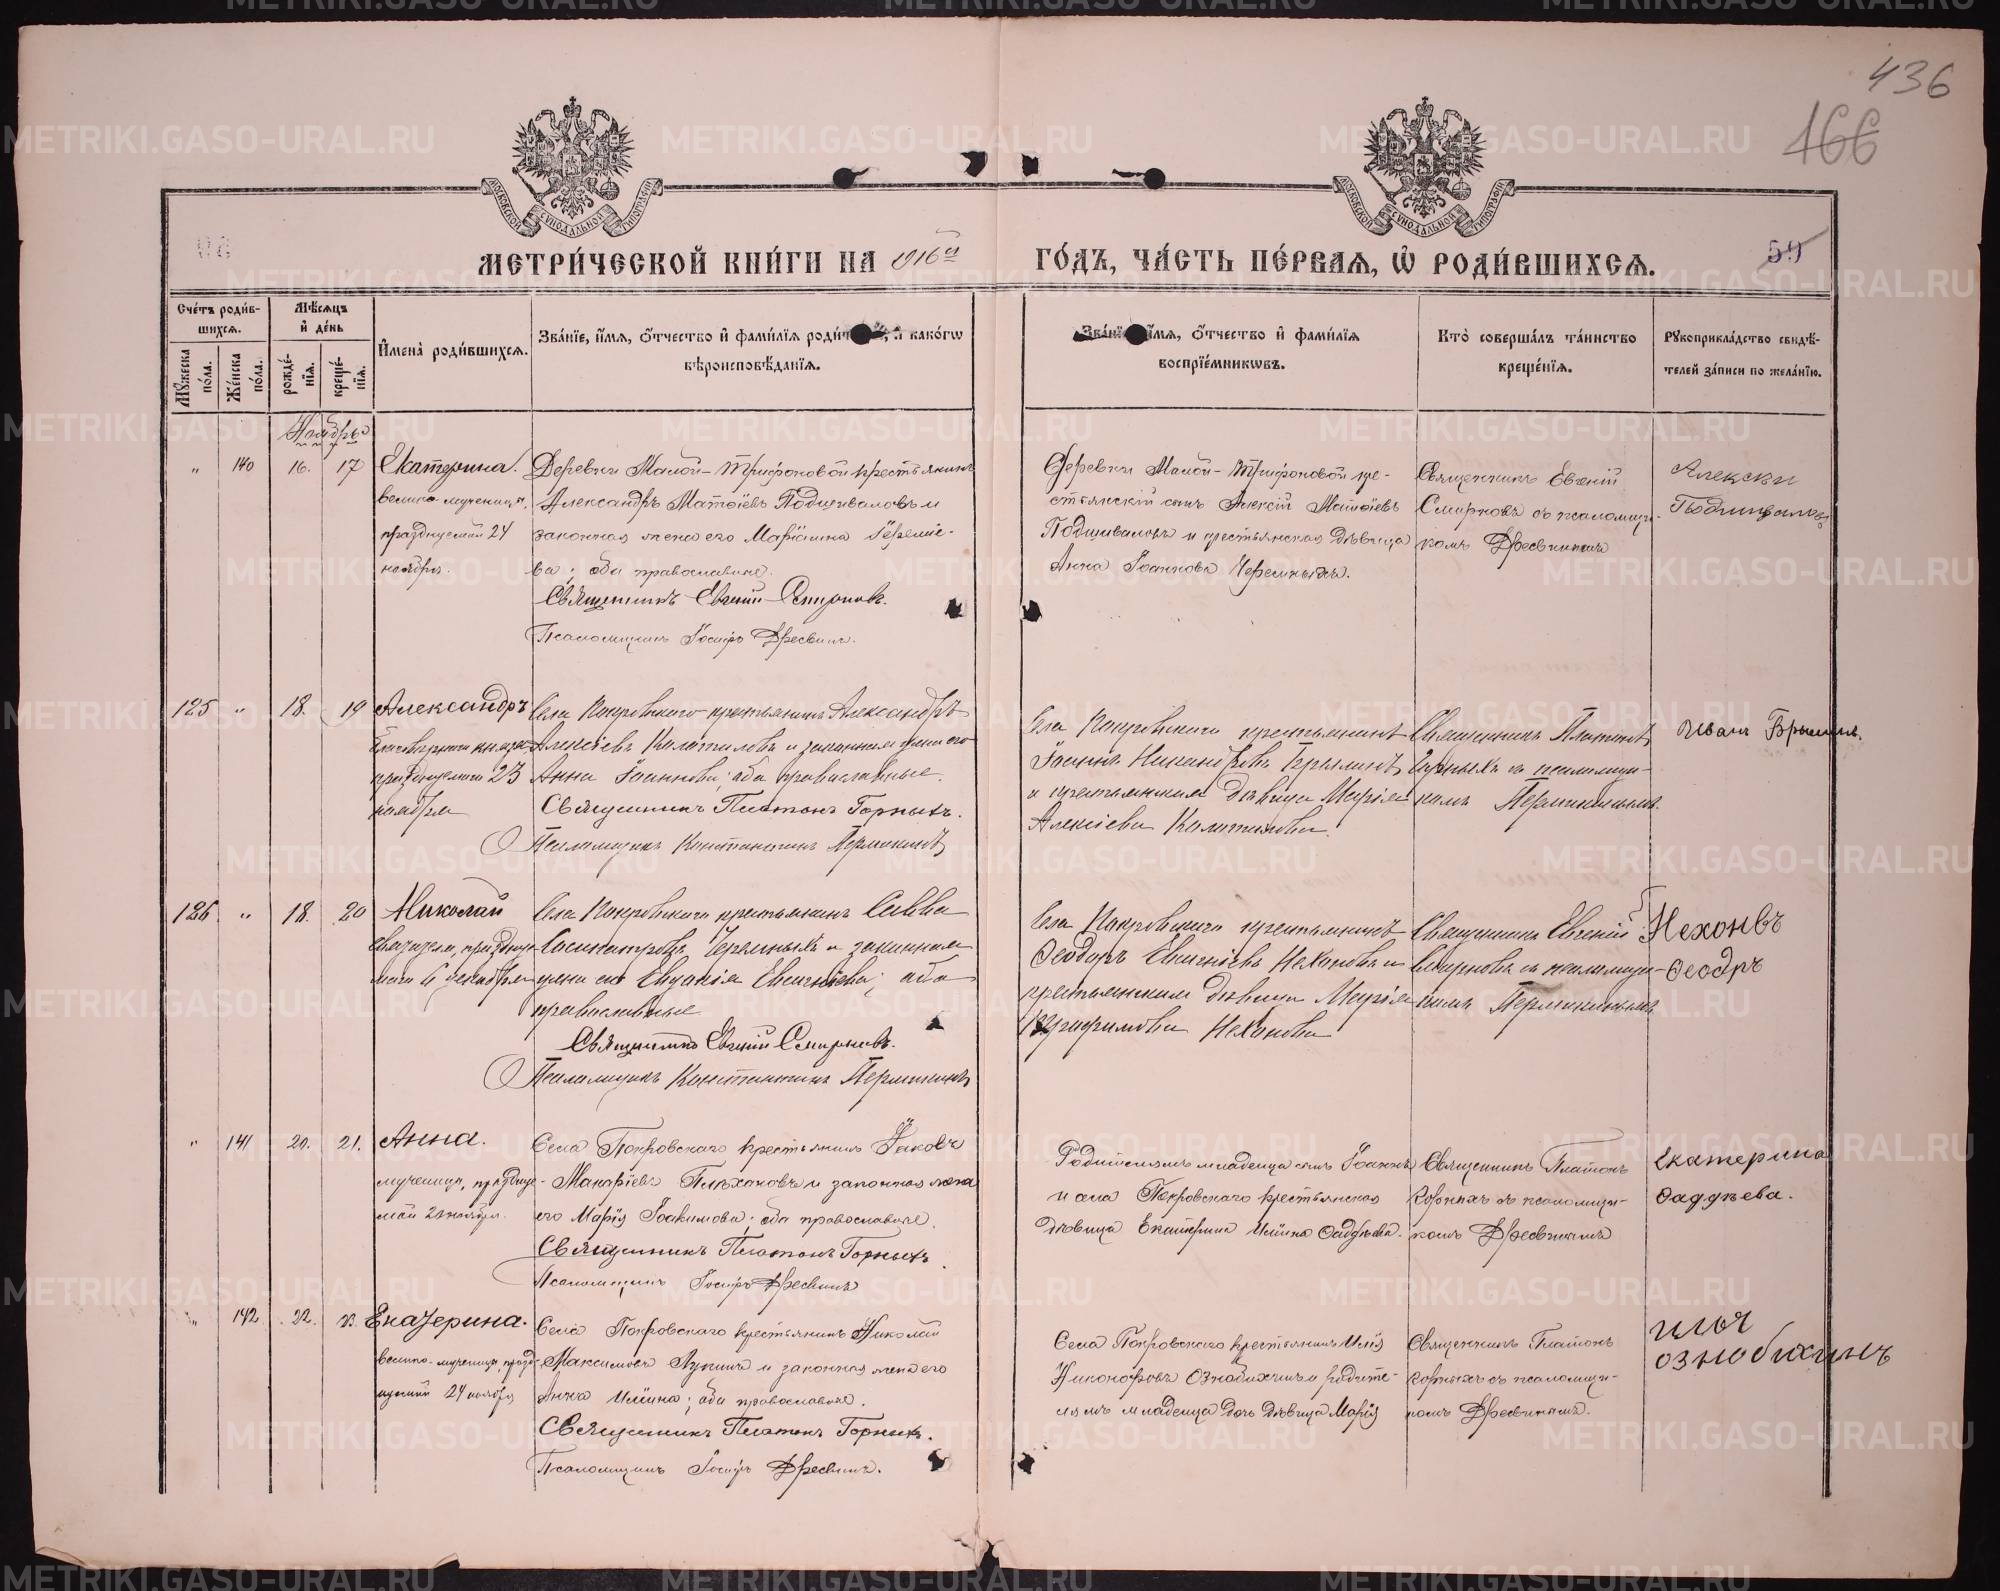 436
166
МОСКОВСКОЙ СѴНОДАЛЬНОЙ ТИПОГРАФІИ
МОСКОВСКОЙ СѴНОДАЛЬНОЙ ТИПОГРАФІИ
МЕТРИ́ЧЕСКОЙ КНИ́ГИ НА 1916й ГО́ДЪ, ЧА́СТЬ ПЕ́РВАѦ, Ѡ҆ РОДИ́ВШИХСѦ.
59
Сче́тъ роди́в-
шихсѧ.
Мꙋжеска по́ла.
Же́нска по́ла.
Мѣ́сѧцъ
и҆ де́нь
рожде́-
нїѧ.
креще́-
нїѧ.
И҆мена̀ роди́вшихсѧ.
Зва́нїе, и҆́мѧ, ѻ҆́тчество и҆ фами́лїѧ роди́т и҆ како́гѡ
вѣроисповѣ́данїѧ.
Зва́нїе и҆́мѧ, ѻ҆́тчество и҆ фами́лїѧ
воспрїе́мникѡвъ.
Кто̀ соверша́лъ та́инство
креще́нїѧ.
Рꙋкоприкла́дство свидѣ́-
телей за́писи по жела́нїю.
Ноябрь
" 140 16. 17 Екатерина.
велико-мученицы,
празднуемой 24
ноября.
Деревни Малой-Трифоновой крестьянинъ
Александръ Матѳіевъ Подшиваловъ и
законная жена его Маріанна Іереміе-
ва; оба православные.
Священникъ Евгеній Смирновъ.
Псаломщикъ Іосифъ Дресвинъ.
Деревни Малой-Трифоновой кре-
стьянскій сынъ Алексій Матѳіевъ
Подшиваловъ и крестьянская дѣвица
Анна Іоаннова Черемныхъ.
Священникъ Евгеній
Смирновъ съ псаломщи-
комъ Дресвинымъ
Алексѣй
Подшиваловъ
125 " 18. 19 Александръ
благовѣрнаго князя
празднуемаго 23
ноября
Села Покровскаго крестьянинъ Александръ
Алексіевъ Калатиловъ и законная жена его
Анна Іоаннова; оба православные.
Священникъ Платонъ Горныхъ.
Псаломщикъ Константинъ Пермикинъ
Села Покровскаго крестьянинъ
Іоаннъ Никаноровъ Брылинъ
и крестьянская дѣвица Марія
Алексіева Калатилова.
Священникъ Платонъ
Горныхъ съ псаломщи-
комъ Пермикинымъ.
Иванъ Брылинъ.
126 " 18. 20 Николай
святителя, праздную-
маго 6 декабря
Села Покровскаго крестьянинъ Савва
Сосипатровъ Черемныхъ и законная
жена его Евдокія Евгеніева; оба
православные
Священникъ Евгеній Смирновъ.
Псаломщикъ Константинъ Пермикинъ
Села Покровскаго крестьянинъ
Ѳеодоръ Евгеніевъ Нехоновъ и
крестьянская дѣвица Марія
Трифонова Нехонова
Священникъ Евгеній
Смирновъ съ псаломщи-
комъ Пермикинымъ
Нехонвъ
Ѳеодръ
" 141 20. 21. Анна.
мученицы, праздуе-
мой 20 ноября.
Села Покровскаго крестьянинъ Іаковъ
Макаріевъ Плехановъ и законная жена
его Марія Іоакимова; оба православные.
Священникъ Платонъ Горныхъ.
Псаломщикъ Іосифъ Дресвинъ
Родителямъ младенца сынъ Іоаннъ
и села Покровскаго крестьянская
дѣвица Екатерина Иліина Ѳаддѣева.
Священникъ Платонъ
Горныхъ съ псаломщи-
комъ Дресвинымъ
Екатерина
Ѳаддѣева.
" 142 22. 23. Екатерина.
велико-мученицы, празд-
нуемой 24 ноября
Села Покровскаго крестьянинъ Николай
Максимовъ Лукинъ и законная жена его
Анна Иліина; оба православные.
Священникъ Платонъ Горныхъ.
Псаломщикъ Іосифъ Дресвинъ.
Села Покровскаго крестьянинъ Илія
Никоноровъ Ознобихинъ и родите-
лямъ младенца дочь дѣвица Марія
Священникъ Платонъ
Горныхъ съ псаломщи-
комъ Дресвинымъ.
Илья
Ознобихинъ
METRIKI.GASO-URAL.RU